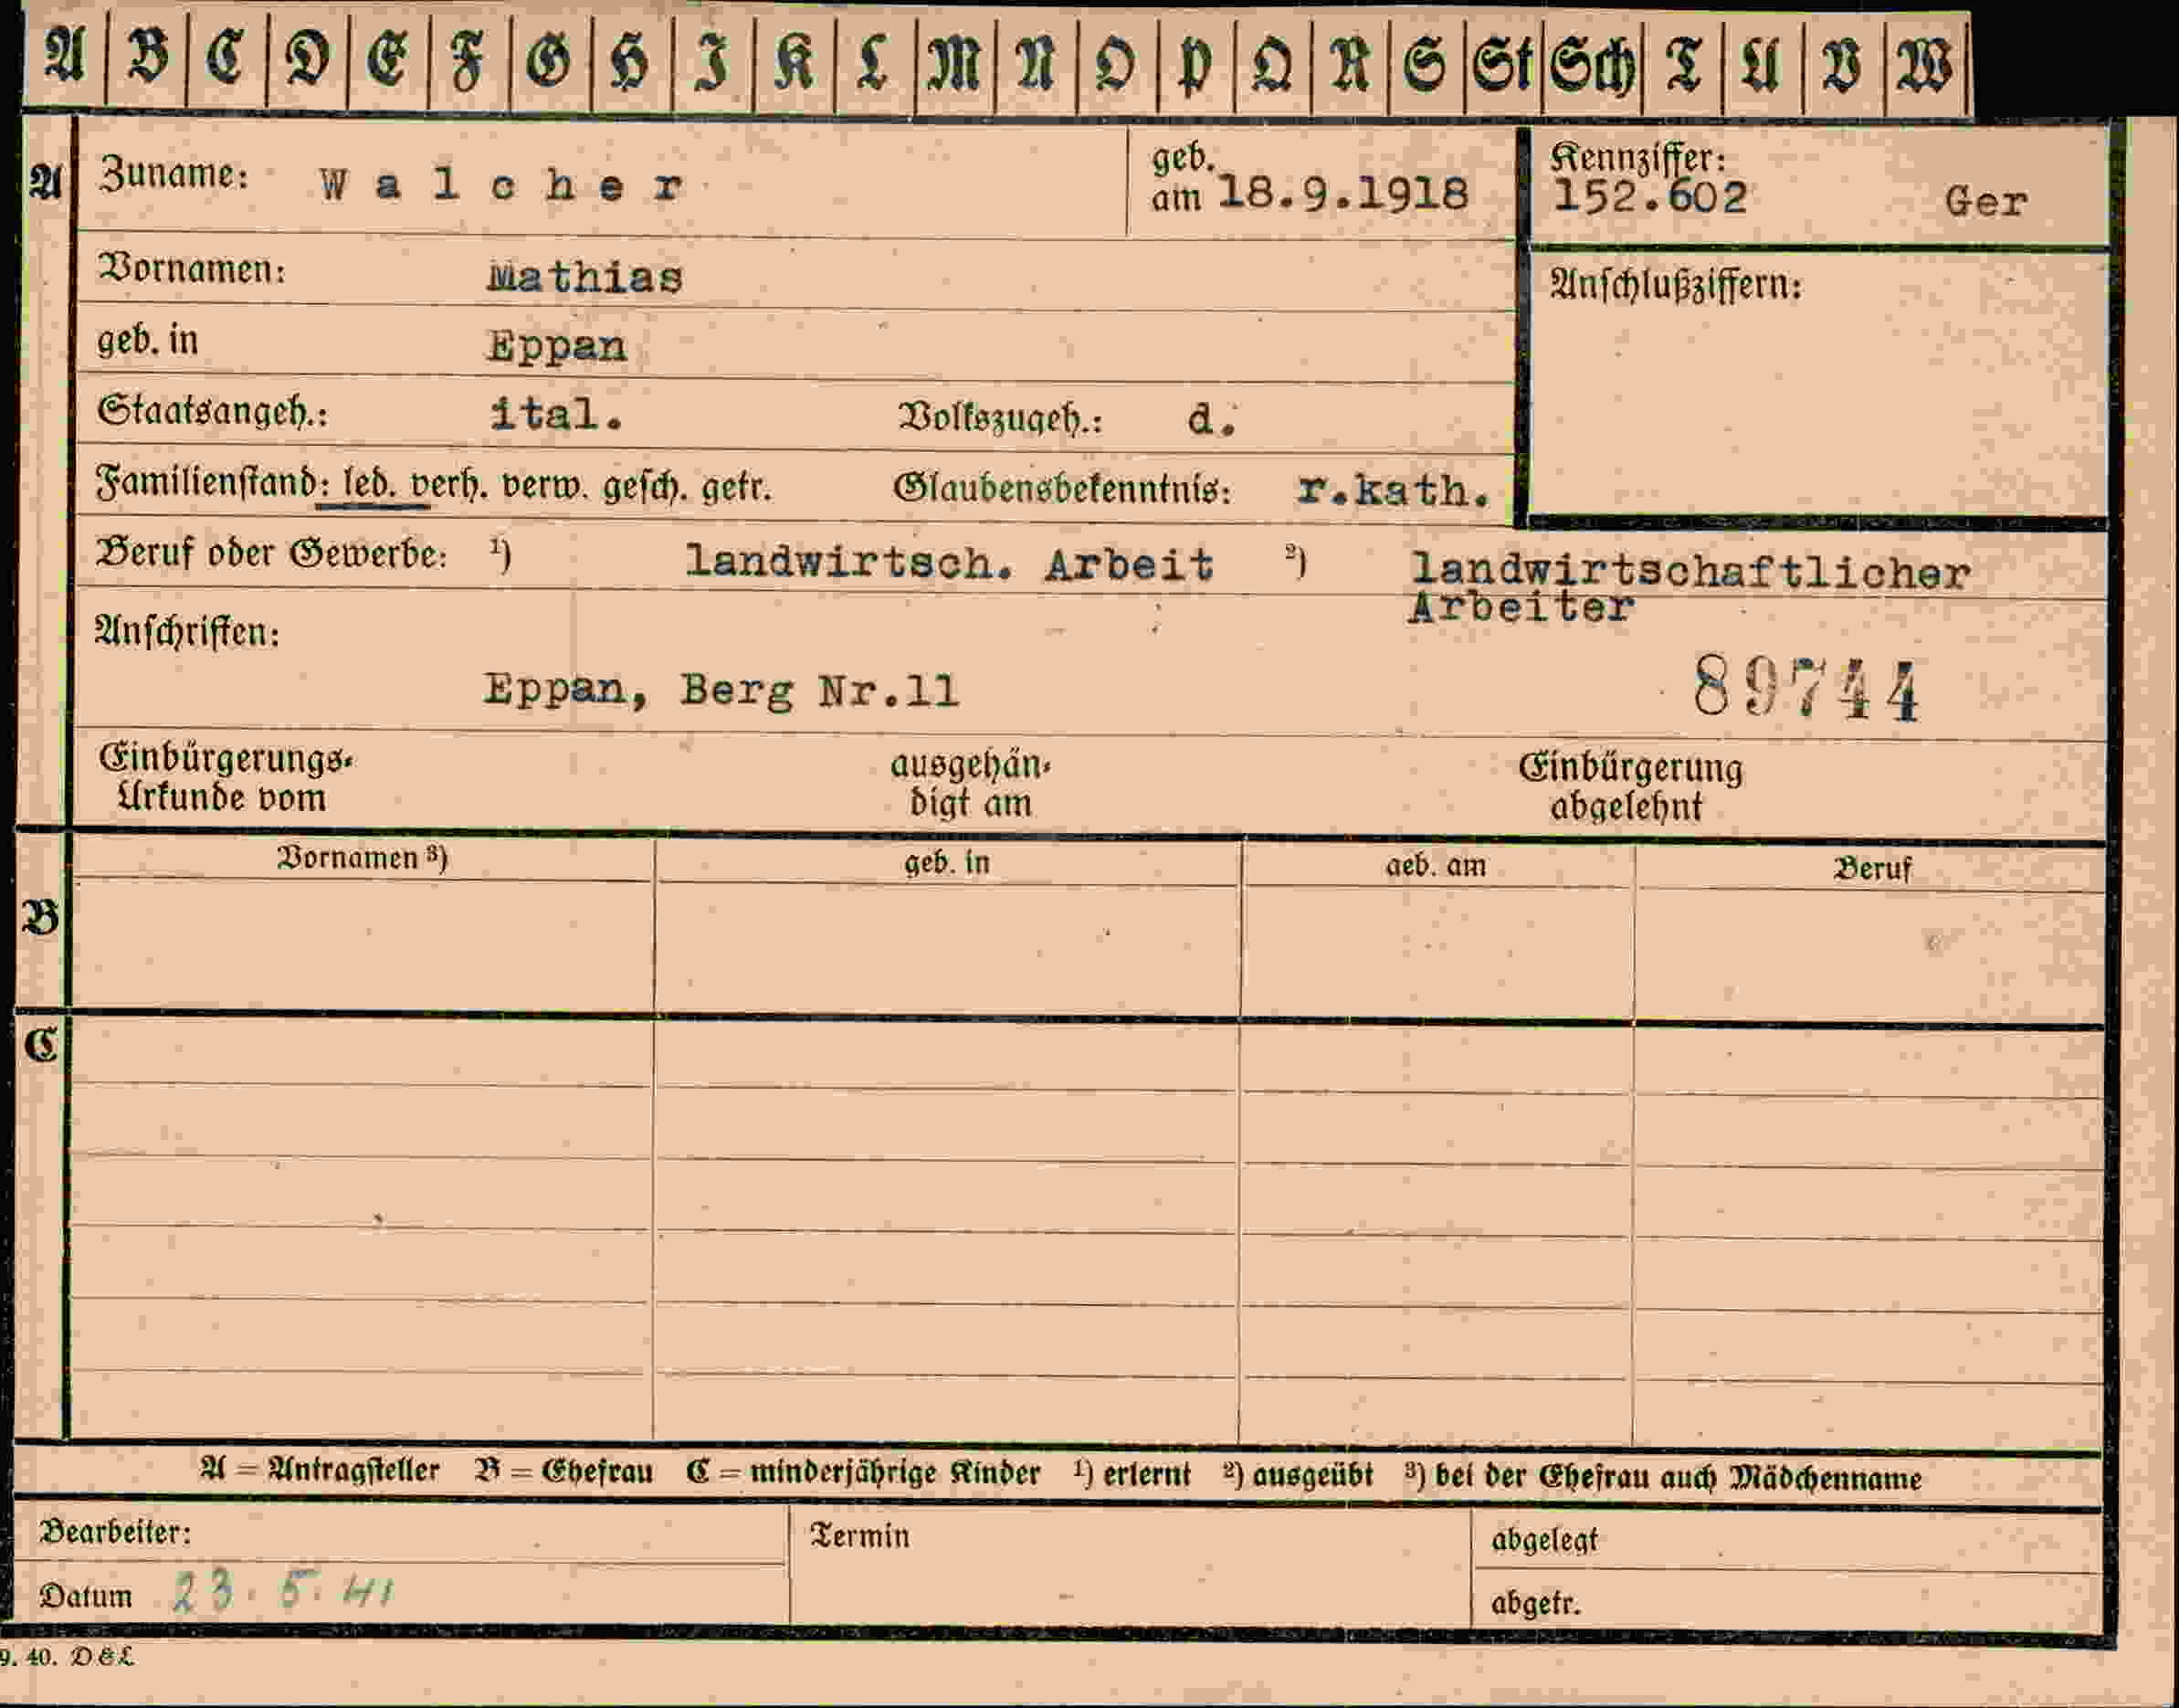 A B C D E F G H I K L M N O P Q R S St Sch T U V W
A Zuname: Walcher geb. am 18.9.1918 Kennziffer: 152.602 Ger
Vornamen: Mathias Anschlußziffern:
geb. in Eppan
Staatsangeh.: ital. Volkszugeh.: d.
Familienstand: led. verh. verw. gesch. getr. Glaubensbekenntnis: r.kath.
Beruf oder Gewerbe: ¹) landwirtsch. Arbeit ²) landwirtschaftlicher
Arbeiter
Anschriften:
Eppan, Berg Nr.11 89744
Einbürgerungs- ausgehän- Einbürgerung
Urkunde vom digt am abgelehnt
Vornamen ³) geb. in geb. am Beruf
B
C
A = Antragsteller B = Ehefrau C = minderjährige Kinder ¹) erlernt ²) ausgeübt ³) bei der Ehefrau auch Mädchenname
Bearbeiter: Termin abgelegt
Datum 23.5.41 abgetr.
9. 40. D&L